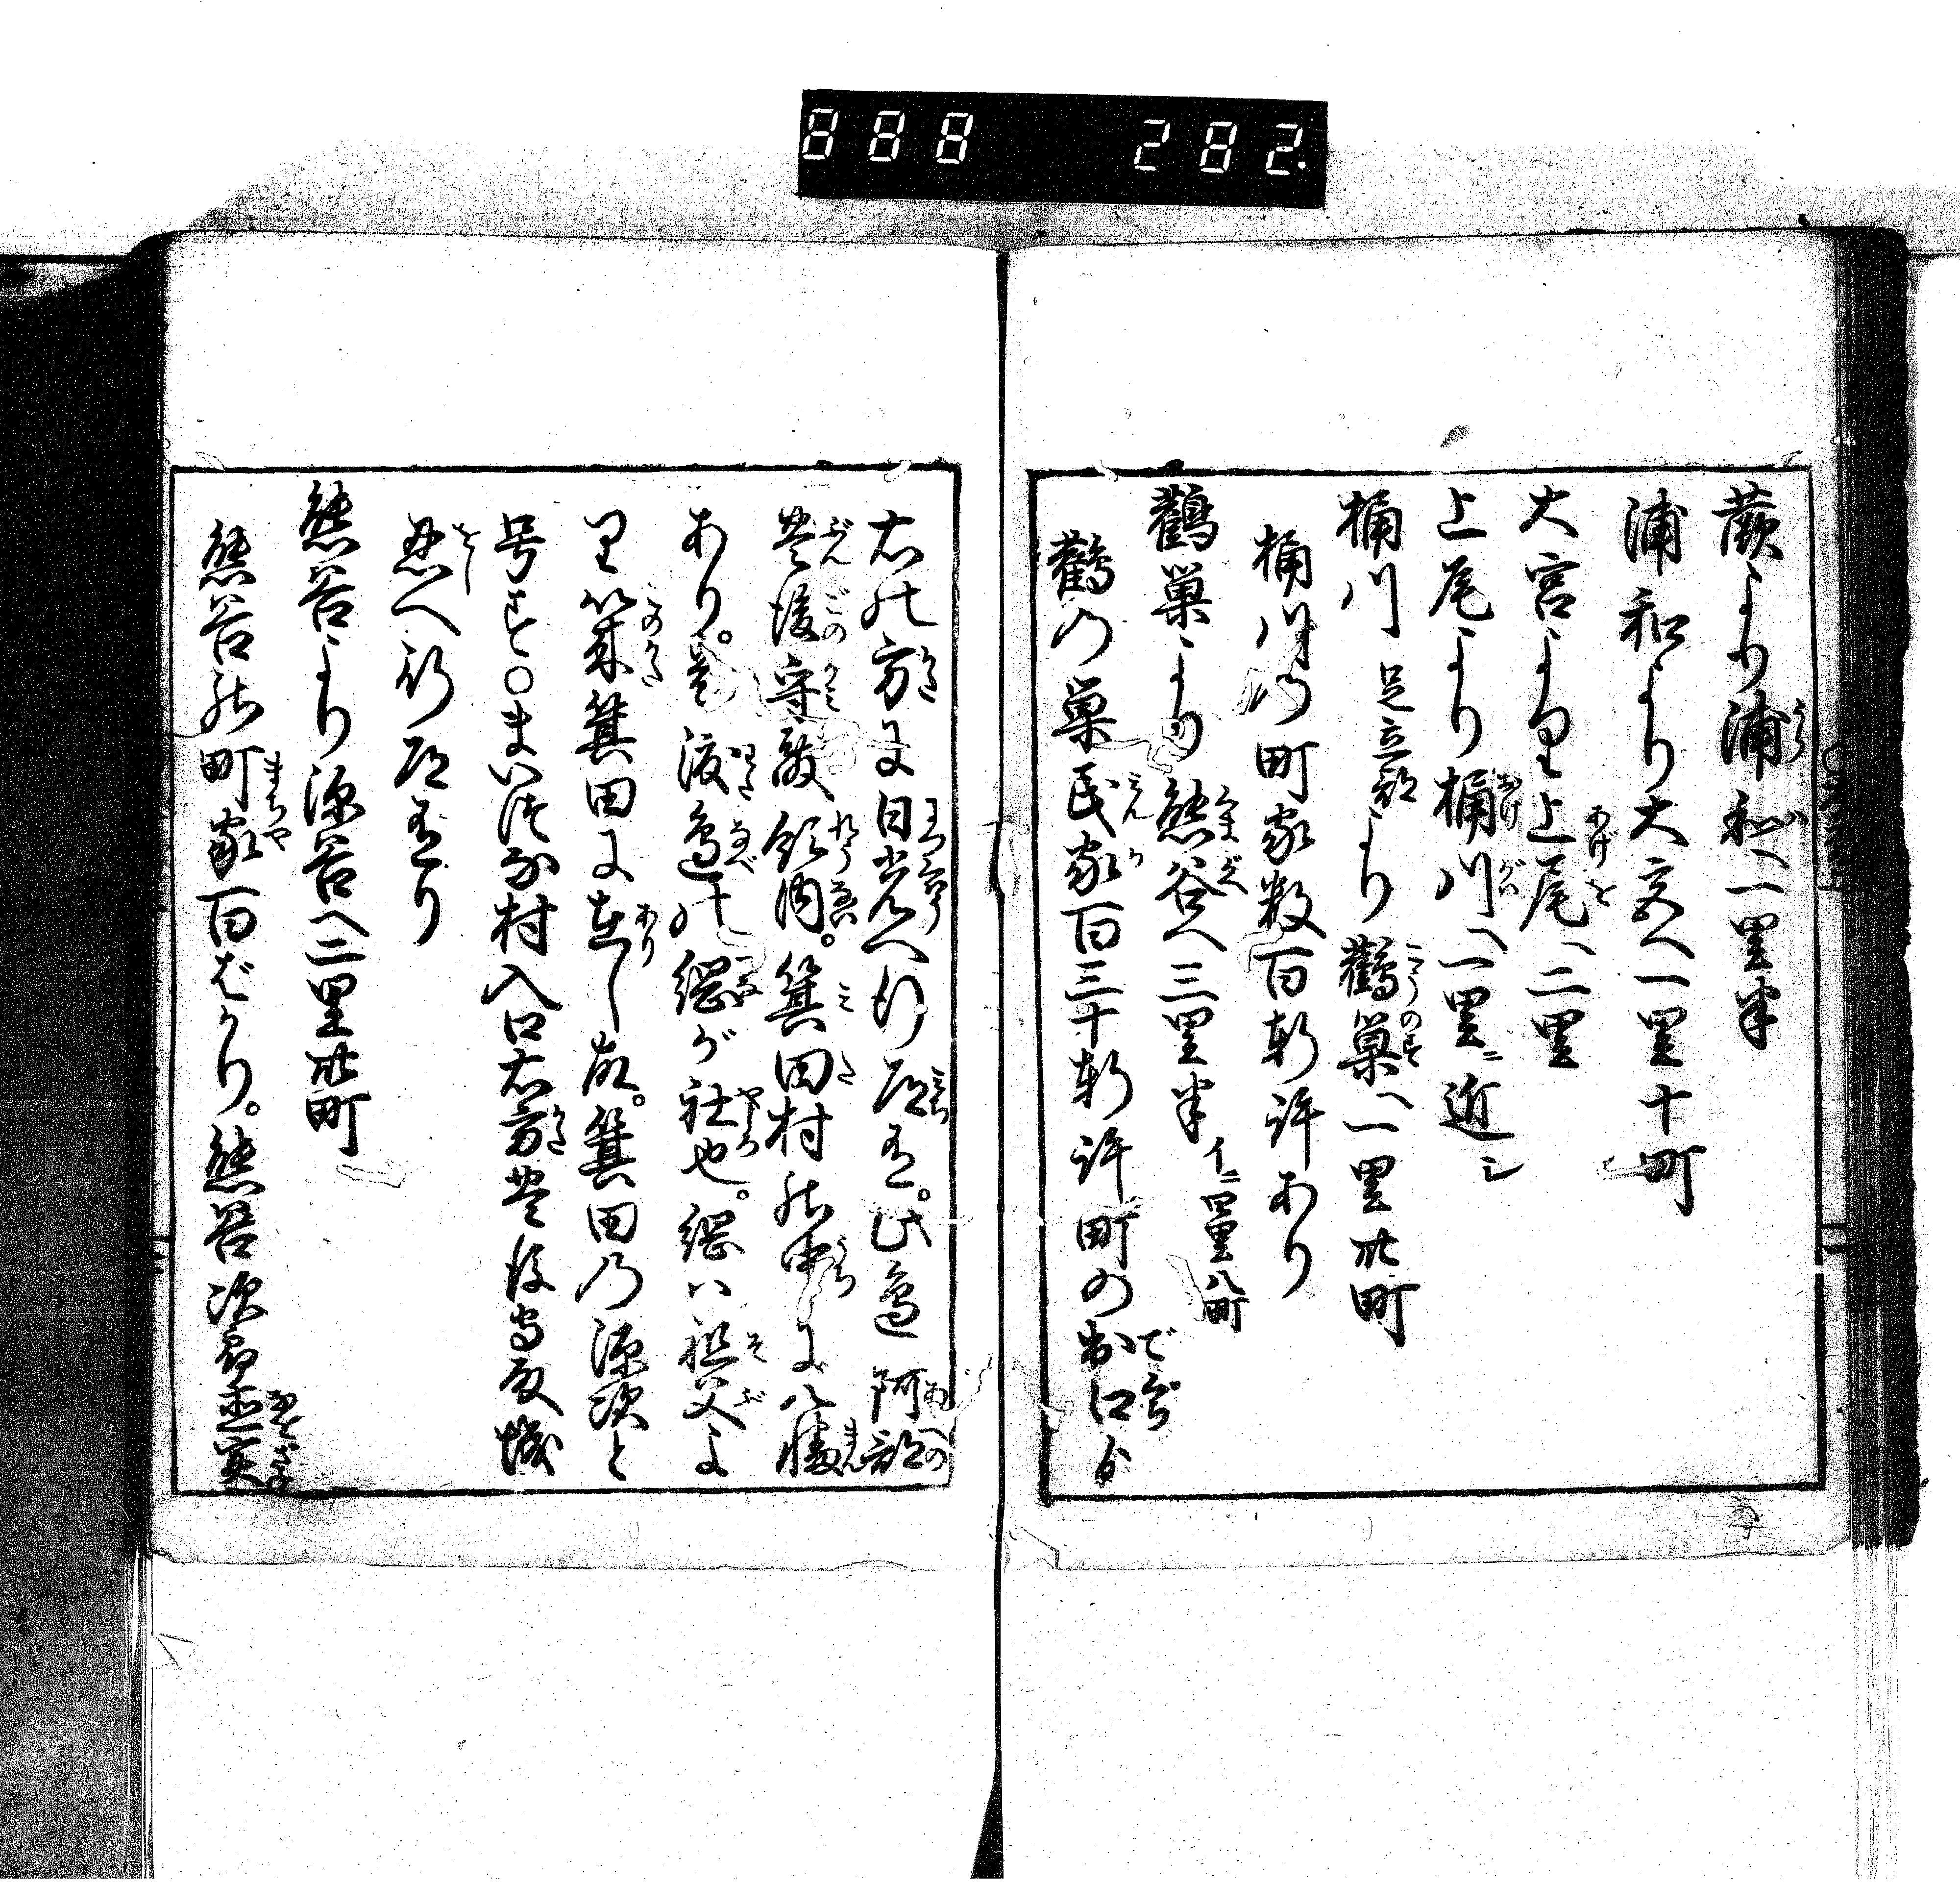 888 282.
蕨より浦和へ一里半
浦和より大宮へ一里十町
大宮より上尾へ二里
上尾より桶川へ一里ニ近シ
桶川足立郡より鸛巣へ一里卅町
桶川の町家数百軒許あり
鸛巣より熊谷へ三里半イニ四里八町
鸛の巣民家百三十軒許町の出口ゟ
右の方に日光へ行道有。此邊阿部
豊後守殿領内。箕田村の中に八幡
あり。是渡邉の綱が社也。綱ハ祖父よ
り箕田に在し故。箕田の源次と
号す○まいつな村入口右方豊後守殿城
忍へ行道有り
熊谷より深谷へ二里卅町
熊谷の町家百ばかり。熊谷次郎直実